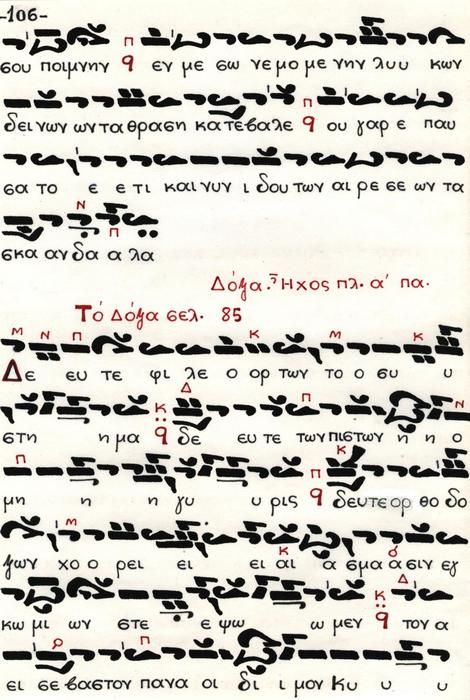 -106-
σου ποιμνην εν με σω νε μο με νην λυυ κων
δει νων ων τα θραση κα τε βα λε ου γαρ ε παυ
σα το ε ε τι και νυν ι δου των αι ρε σε ων τα
σκα αν δα α λα
Δόξα. Ἦχος πλ. α' πα.
Τό Δόξα σελ. 85
Δε ευ τε φι λε ο ορ των το ο συ υ
στη η μα δε ευ τε των πιστων η η ο
μη η η γυ υ ρις δευτε ορ θο δο
ξων χο ο ρει ει ει αι α σμα α σιν εγ
κω μι ων στε ε ψω ω μεν τον α
ει σε βαστον πανα οι δι ι μον Κυ υ υ